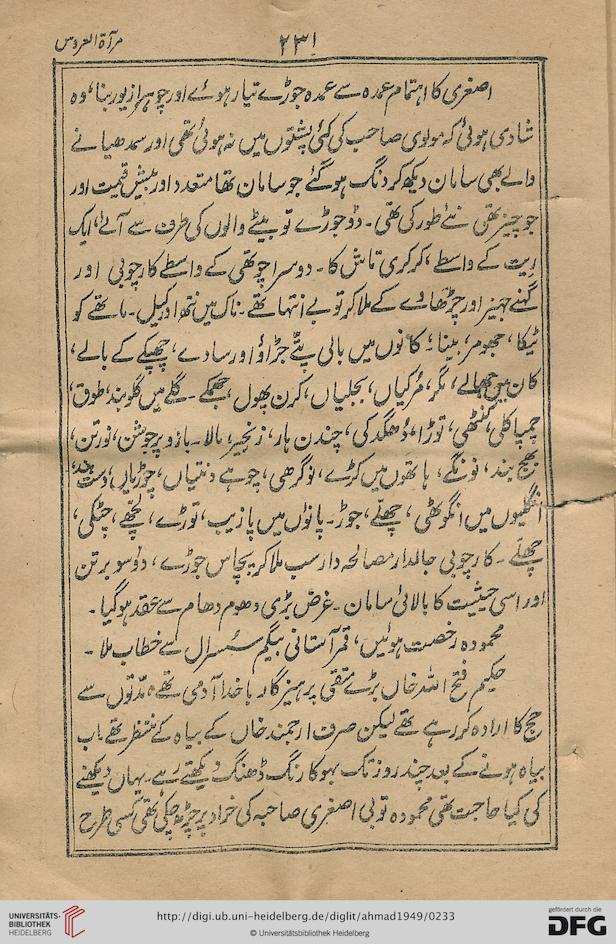 ۲۳۱
مرآۃ العروس
اصغری کا اہتمام عمدہ سے عمدہ جوڑے تیار ہوئے اور چوہرا زیور بنا، وہ
شادی ہوئی کہ مولوی صاحب کی کئی پشتوں میں نہ ہوئی تھی اور سمدھیانے
والے بھی سامان دیکھ کر دنگ ہو گئے جو سامان تھا متعدد اور بیش قیمت اور
جو چیز تھی نئے طور کی تھی۔ دو جوڑے تو بیٹے والوں کی طرف سے آئے، ایک
ریت کے واسطے، کرکری تاش کا۔ دوسرا چوتھی کے واسطے کارچوبی اور
گہنے جہیز اور چڑھاوے کے ملا کر تو بے انتہا تھے۔ ناک میں نتھ اور کیل۔ ماتھے کو
ٹیکا، جھومر، بینا؛ کانوں میں بالی پتّے جڑاؤ اور سادے، چھپکے کے بالے،
کان میں جھالے، مگر، مُرکیاں، بجلیاں، کرن پھول، جھمکے۔ گلے میں گلوبند، طوق،
چمپا کلی، کنٹھی، توڑا، دُھگدگی، چندن ہار، زنجیر، مالا۔ بازو پر جوشن، نورتن،
بھج بند، نونگے، ہاتھوں میں کڑے، نوگرھی، چوہے دنتیاں، چوڑیاں، دست بند،
انگلیوں میں انگوٹھی، چھلّے، جوڑ۔ پاؤں میں پازیب، توڑے، لچھے، چٹکی،
چھلّے۔ کارچوبی جالدار مصالحہ دار سب ملا کر پچاس جوڑے، دو سو برتن
اور اسی حیثیت کا بالائی سامان۔ غرض بڑی دھوم دھام سے عقد ہو گیا۔
محمودہ رخصت ہوئیں، قمر آستانی بیگم سسرال سے خطاب ملا۔
حکیم فتح اللہ خاں بڑے متقی پرہیزگار باخدا آدمی تھے، مدّتوں سے
حج کا ارادہ کر رہے تھے لیکن صرف ارجمند خاں کے بیاہ کے منتظر تھے اب
بیاہ ہونے کے بعد چند روز تک بہو کا رنگ ڈھنگ دیکھتے رہے۔ یہاں دیکھنے
کی کیا حاجت تھی محمودہ تو بی اصغری صاحبہ کی خراد پر چڑھ چکی تھی کسی طرح
UNIVERSITÄTS-
BIBLIOTHEK
HEIDELBERG
http://digi.ub.uni-heidelberg.de/diglit/ahmad1949/0233
© Universitätsbibliothek Heidelberg
gefördert durch die
DFG